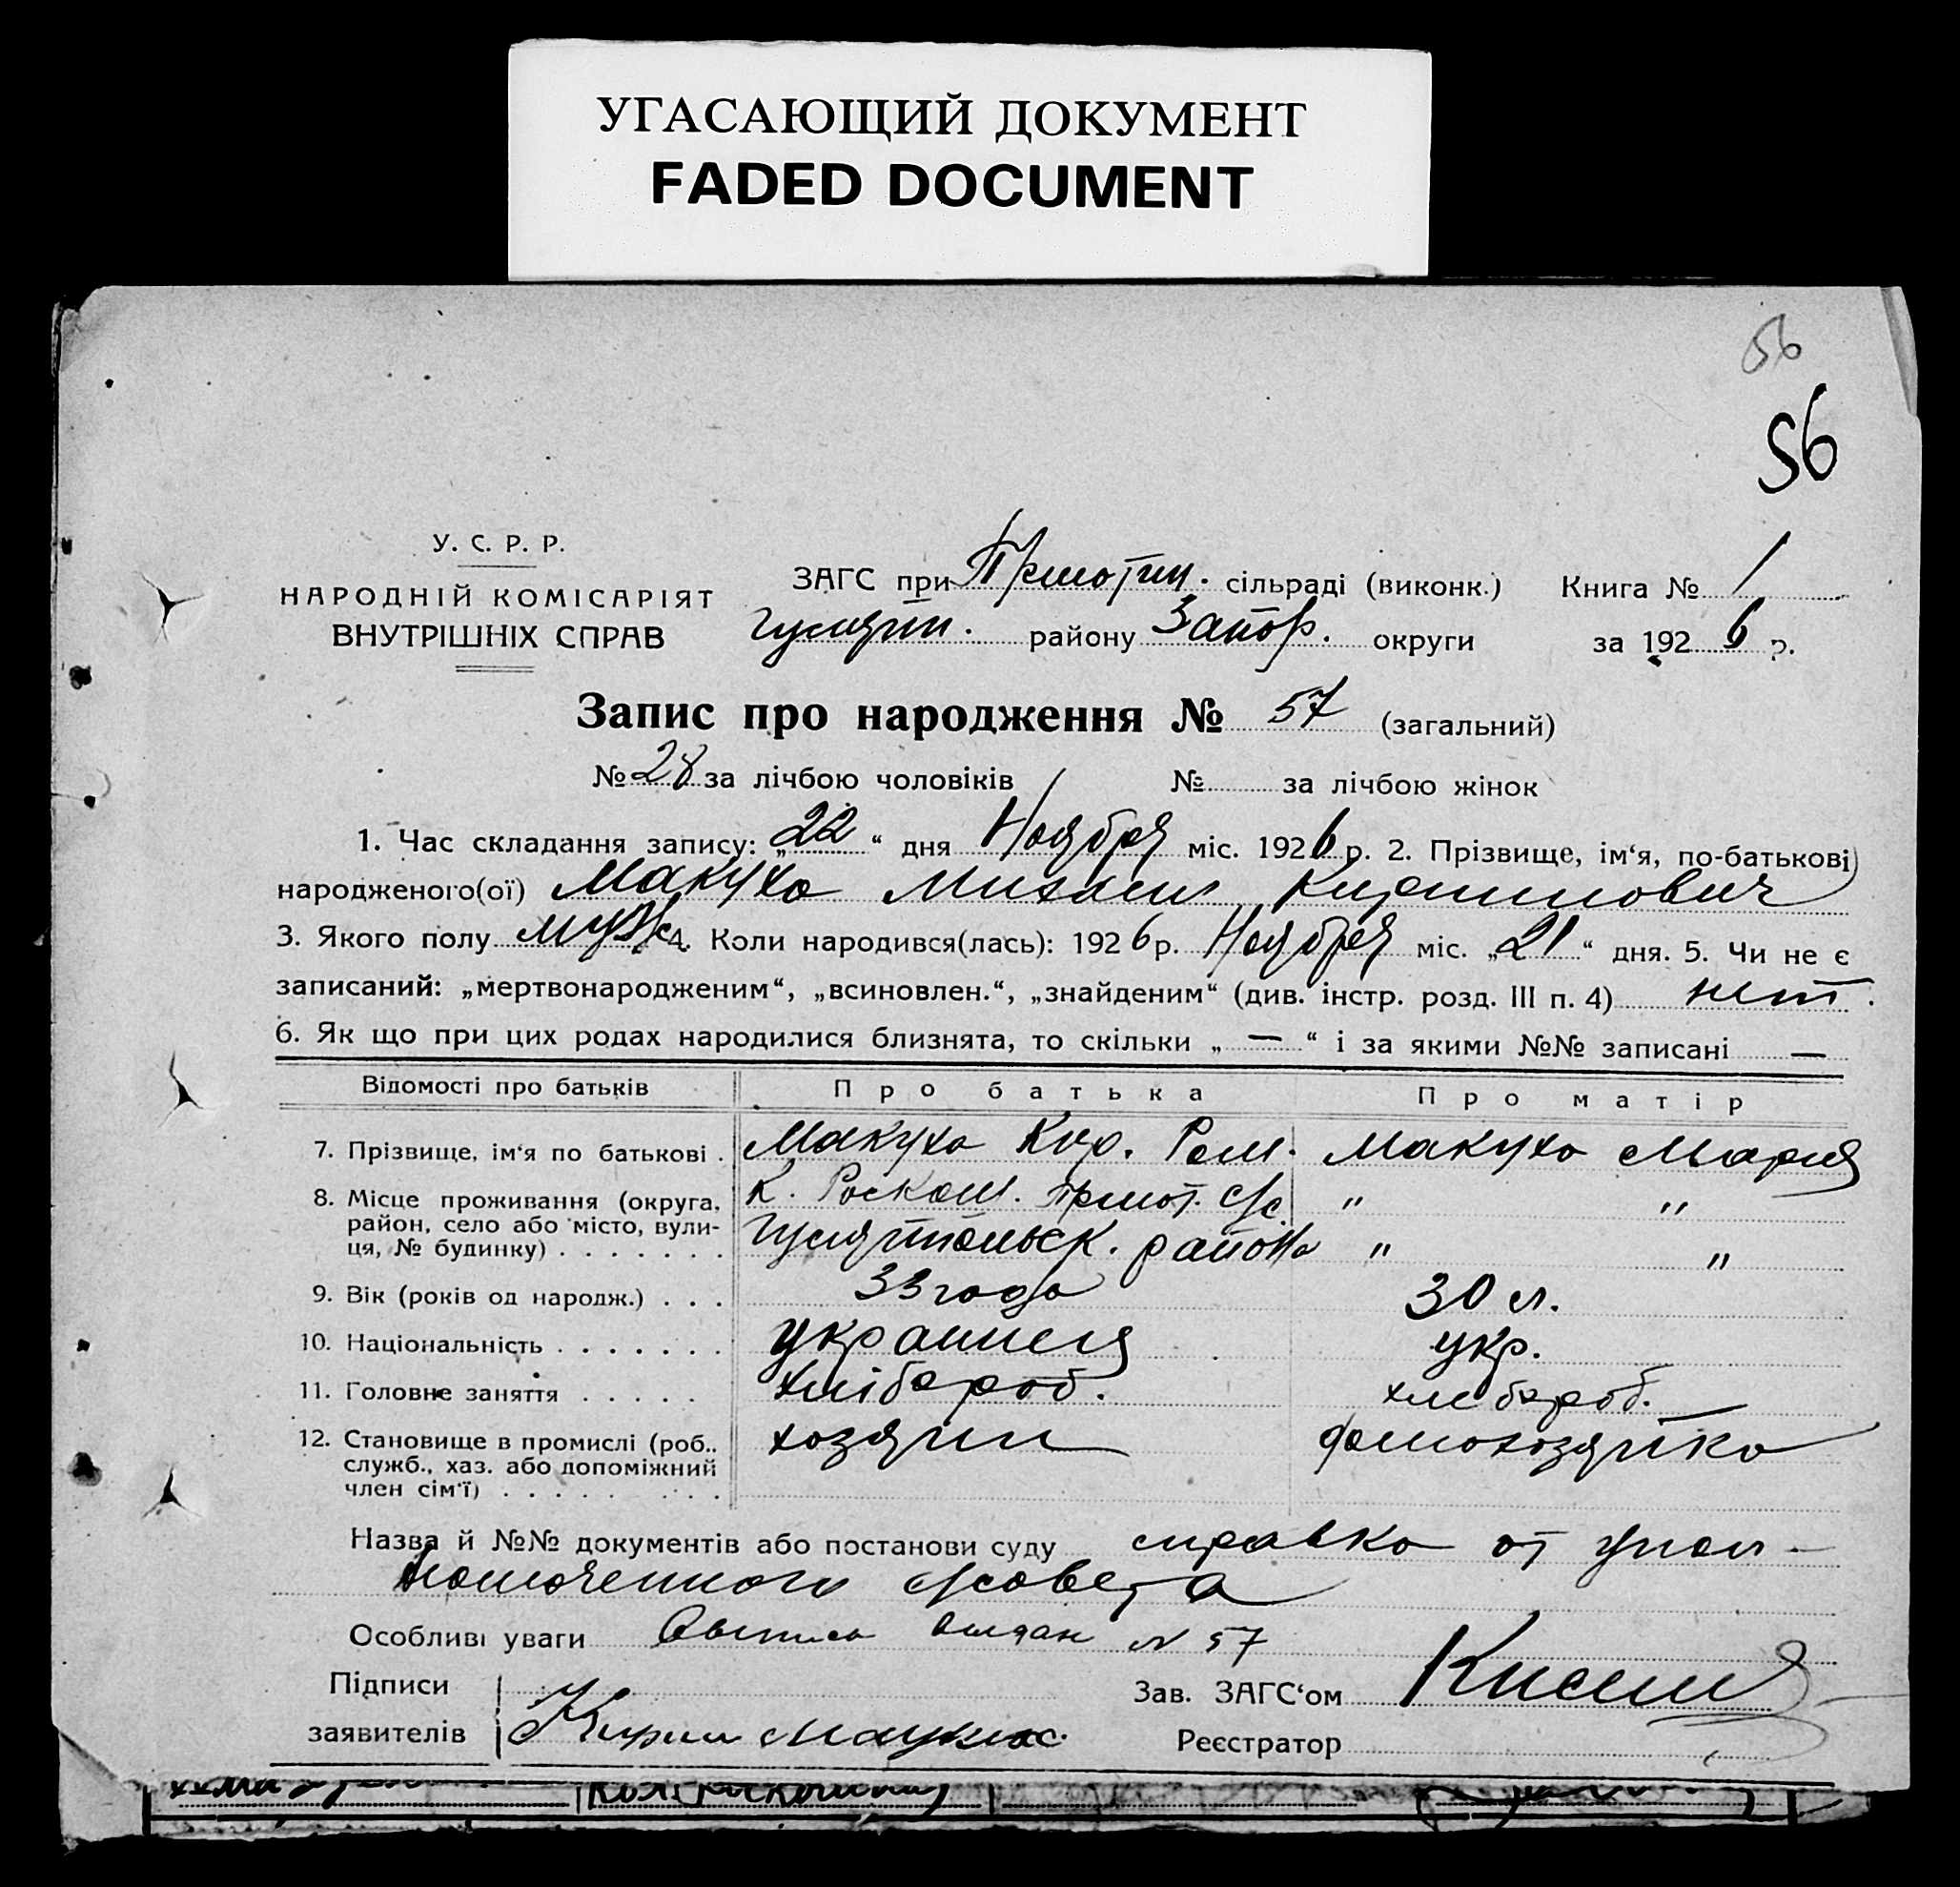 УГАСАЮЩИЙ ДОКУМЕНТ
FADED DOCUMENT
56
56
У. С. Р. Р.
НАРОДНІЙ КОМІСАРІЯТ
ВНУТРІШНІХ СПРАВ
ЗАГС при сільраді (виконк.) Книга № 1
Гуляйп. району Запор. округи за 1926 р.
Запис про народження № 57 (загальний)
№ 28 за лічбою чоловіків № за лічбою жінок
1. Час складання запису: „22“ дня Ноября міс. 1926 р. 2. Прізвище, ім‘я, по-батькові
народженого(ої) Макуха Михаил Кирилович
3. Якого полу муж. 4. Коли народився(лась): 1926 р. Ноября міс. „21“ дня. 5. Чи не є
записаний: „мертвонародженим“, „всиновлен.“, „знайденим“ (див. інстр. розд. III п. 4) нет.
6. Як що при цих родах народилися близнята, то скільки „ — “ і за якими №№ записані —
Відомості про батьків Про батька Про матір
7. Прізвище, ім‘я по батькові . Макуха Кир. Ром. Макуха Мария
8. Місце проживання (округа, к. Роскош. с/с. " "
район, село або місто, вули- Гуляйпольск. района " "
ця, № будинку) . . . . . . .
9. Вік (років од народж.) . . . 33 года 30 л.
10. Національність . . . . . . . украинец укр.
11. Головне заняття . . . . . хлібороб. хлебороб.
12. Становище в промислі (роб., хозяин домохозяйка
служб., хаз. або допоміжний
член сім‘ї) . . . . . . . .
Назва й №№ документів або постанови суду справка от упол-
номоченного с/совета
Особливі уваги выдан N 57
Підписи
заявителів Кирил Макуха
Зав. ЗАГС‘ом
Реєстратор